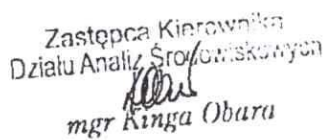 Zastępca Kierownika
Działu Analiz Środowiskowych
mgr Kinga Obara